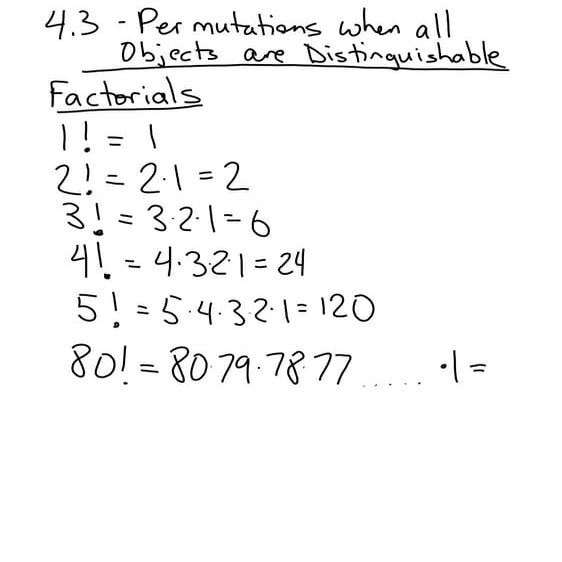 4.3 - Permutations when all
Objects are Distinguishable
Factorials
1! = 1
2! = 2·1 = 2
3! = 3·2·1 = 6
4! = 4·3·2·1 = 24
5! = 5·4·3·2·1 = 120
80! = 80·79·78·77 ..... ·1 =